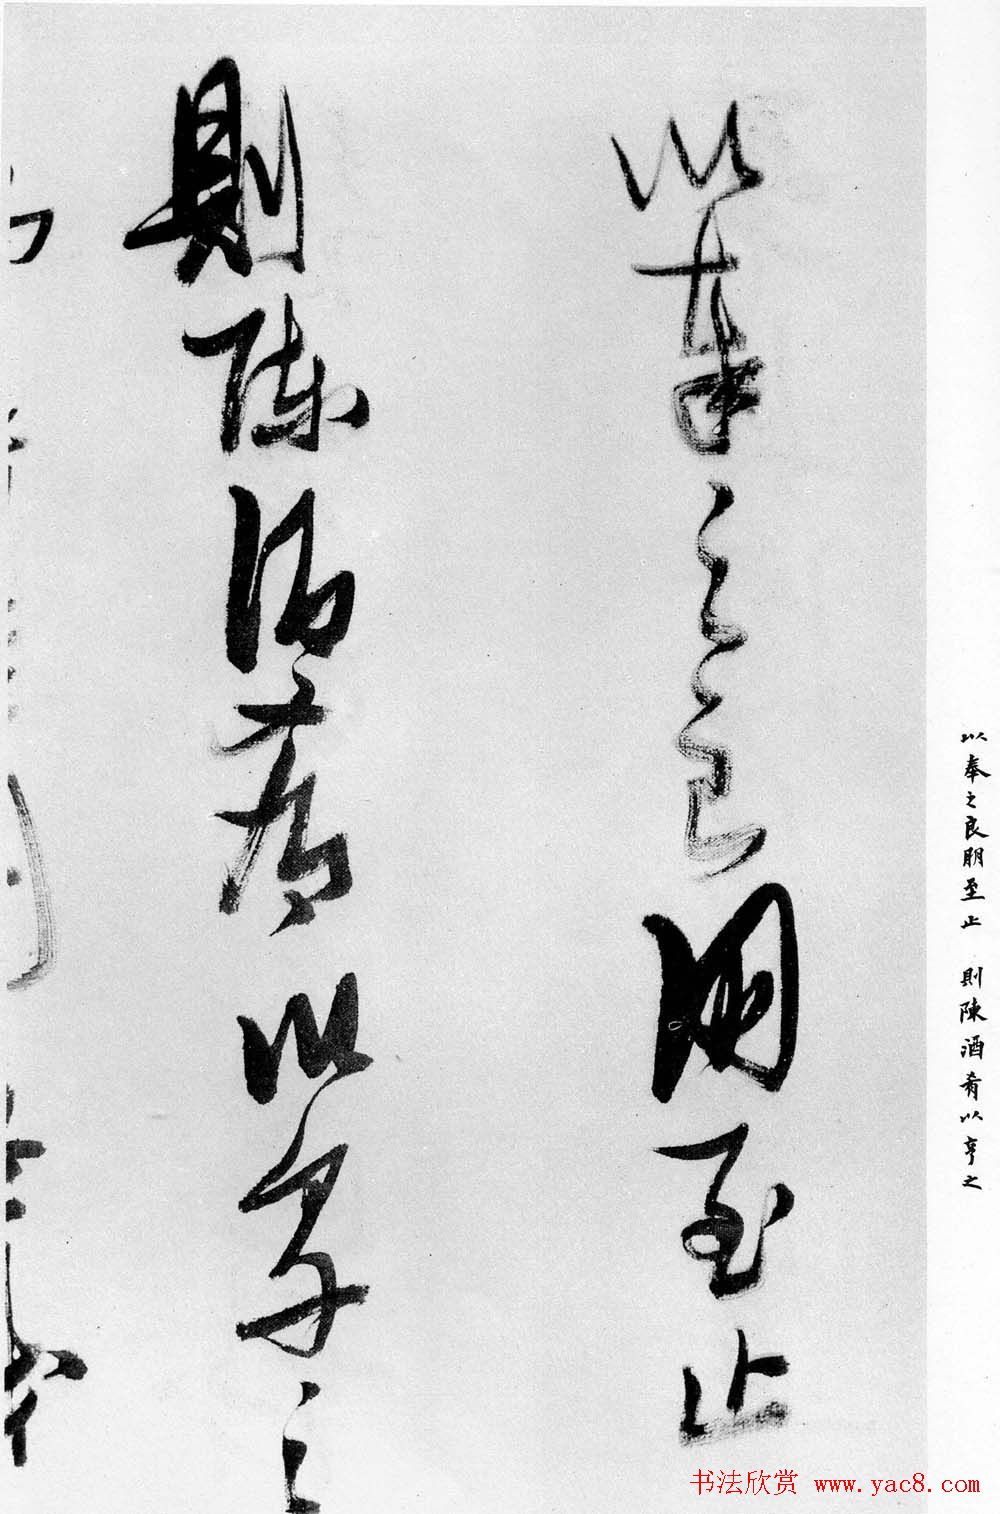 以奉之良朋至止
則陳酒肴以享之
以奉之良朋至止 則陳酒肴以亨之
书法欣赏 www.yac8.com